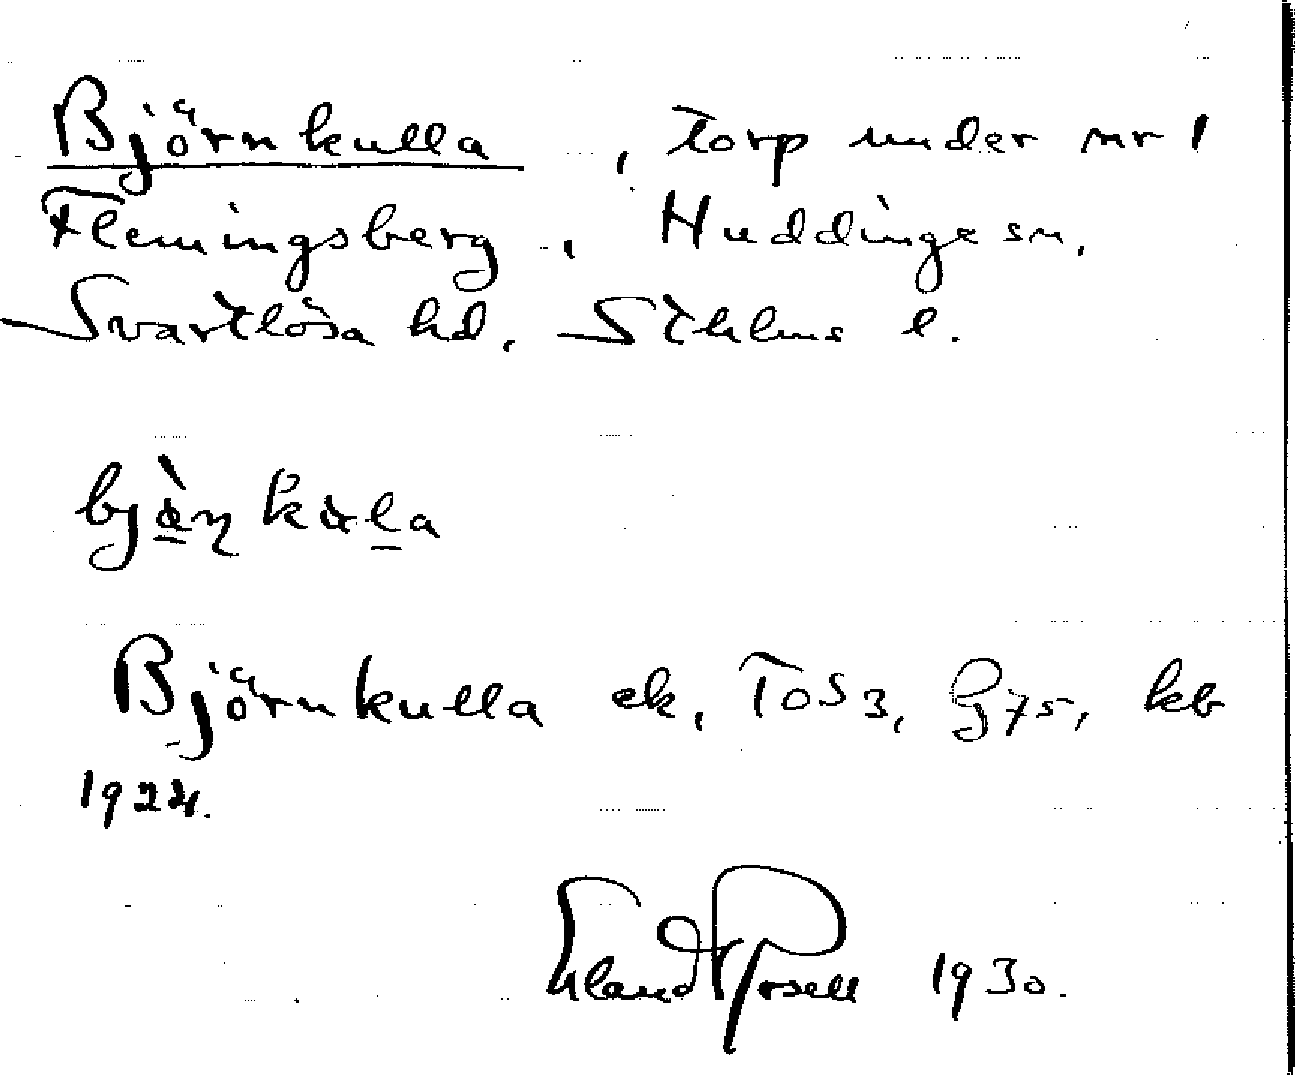 Björnkulla, torp under nr 1
Flemingsberg, Huddinge sn,
Svartlösa hd, Sthlms l.
Björnkulla ek, ToS3, G75, kb
1924.
Erland Rosell 1930.